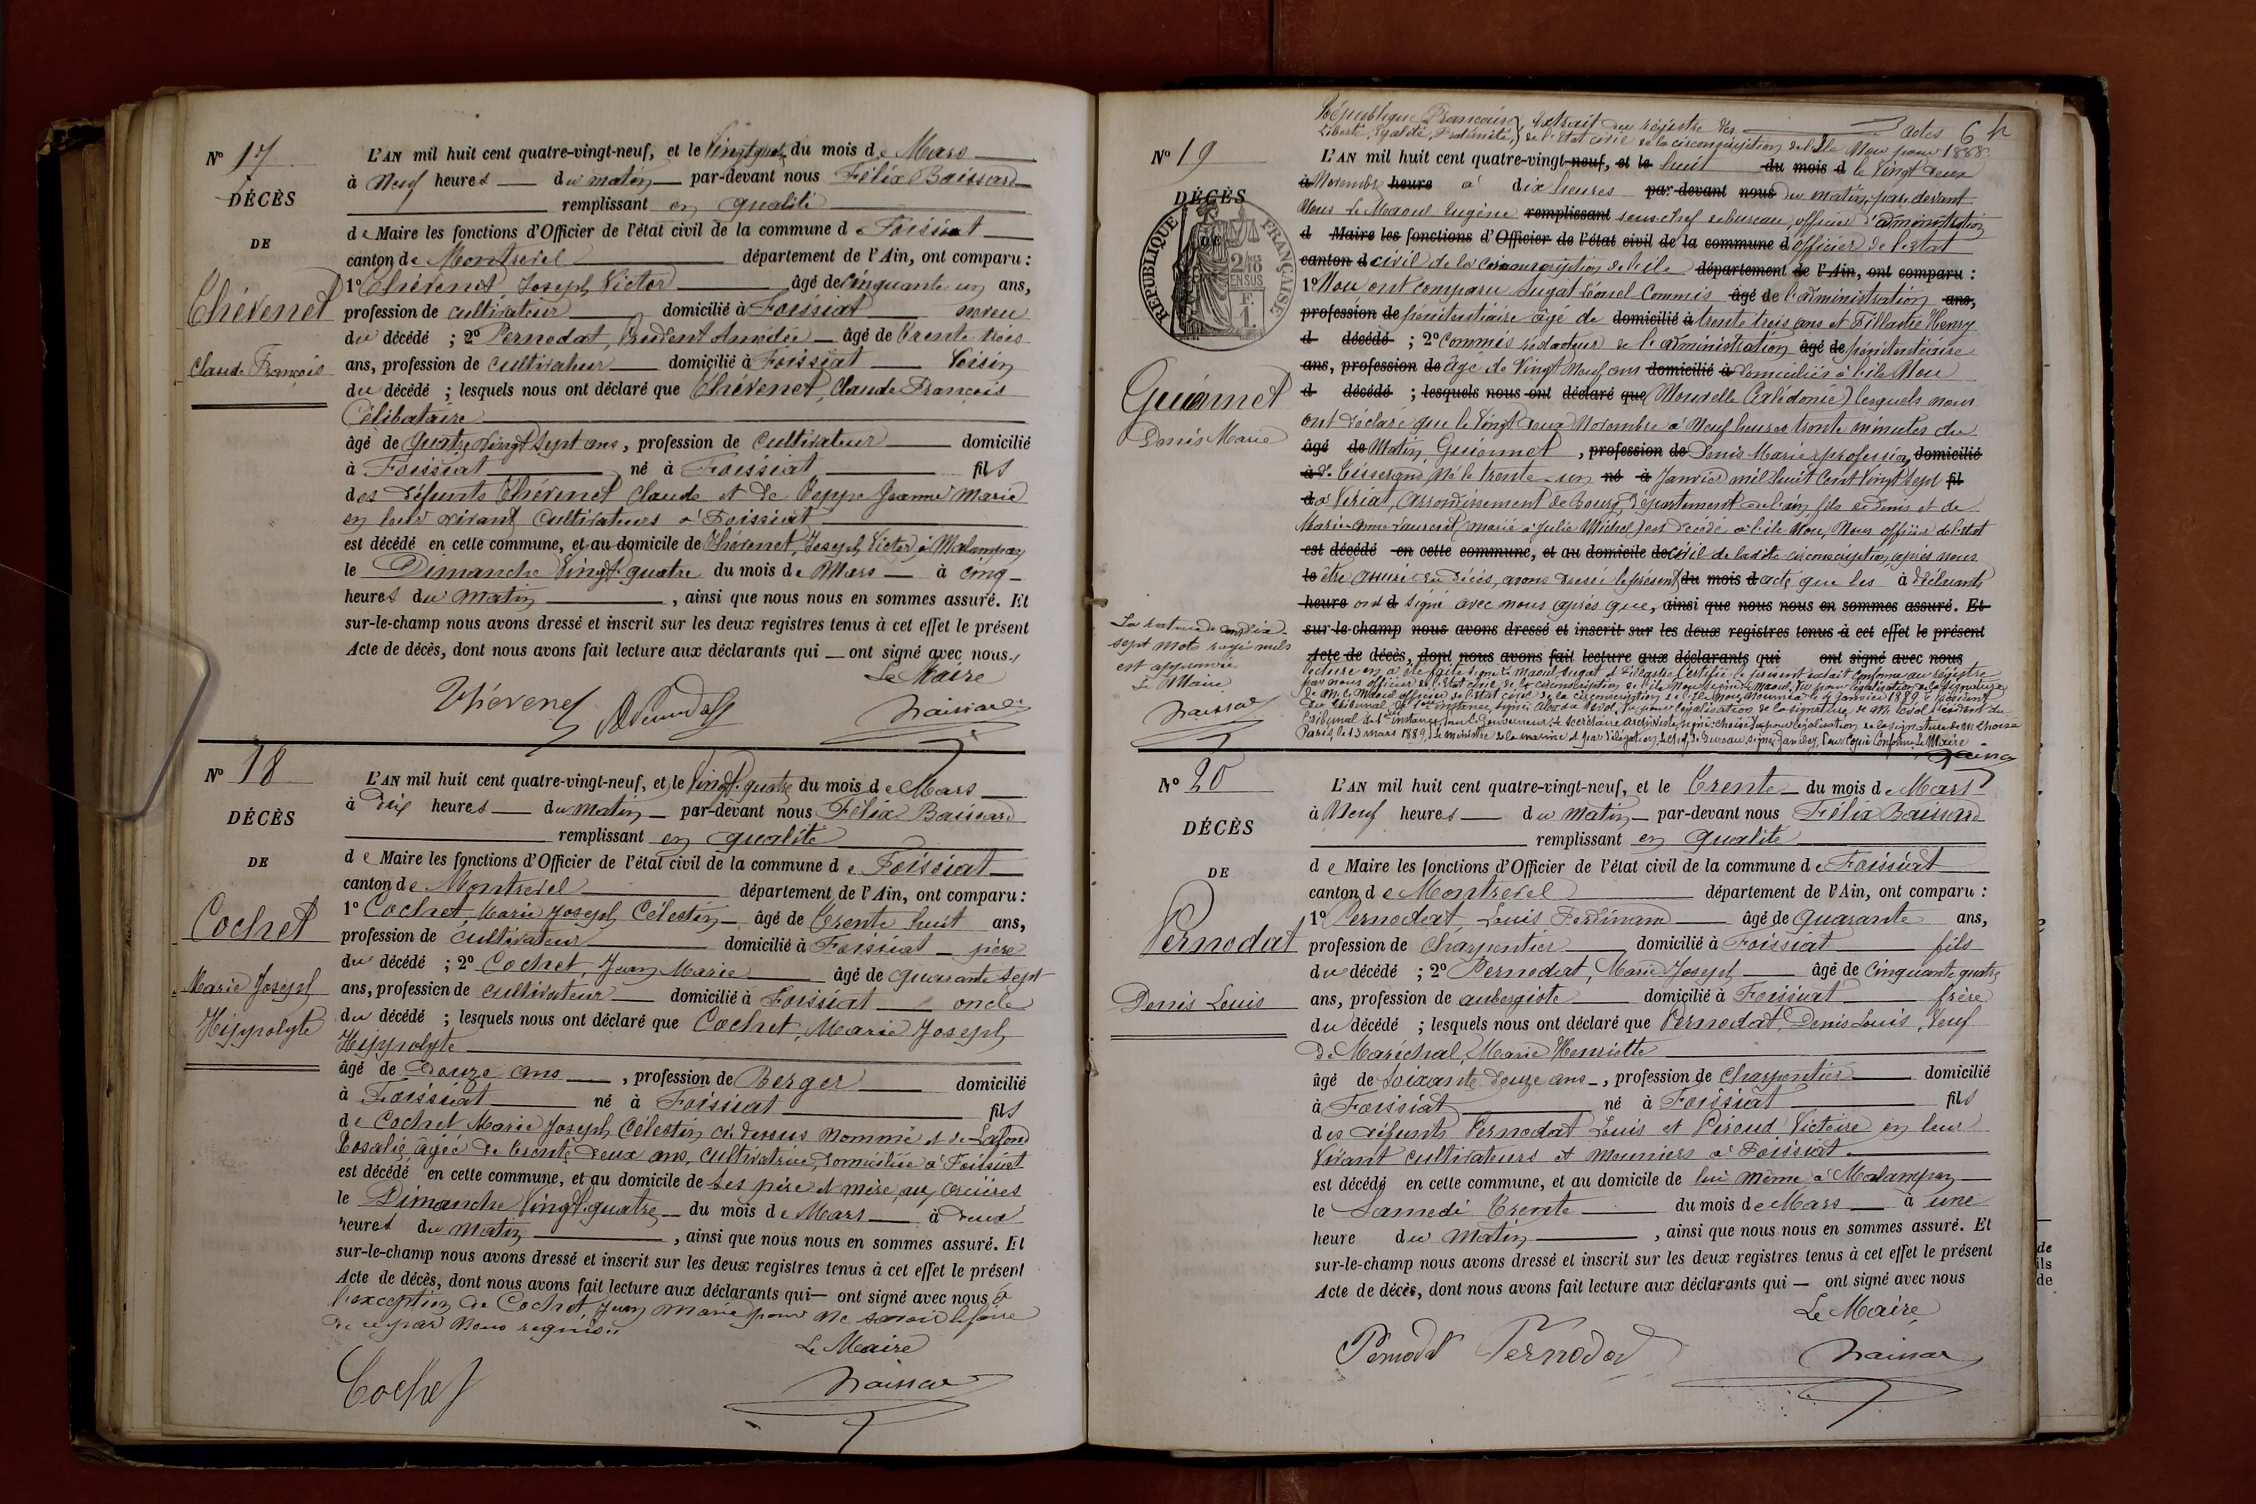 N° 17
DÉCÈS
DE
Thévenet
Claude François
L'AN mil huit cent quatre-vingt-neuf, et le Vingt quatre du mois de Mars
à Neuf heures du matin par-devant nous Félix Baissard
remplissant en qualité
de Maire les fonctions d'Officier de l'état civil de la commune de Foissiat
canton de Montrevel département de l'Ain, ont comparu :
1° Thévenet Joseph Victor âgé de Cinquante un ans,
profession de cultivateur domicilié à Foissiat neveu
du décédé ; 2° Pernodat, Prudent Amédée âgé de trente trois
ans, profession de cultivateur domicilié à Foissiat Voisin
du décédé ; lesquels nous ont déclaré que Thévenet, Claude François
Célibataire
âgé de quatre vingt sept ans, profession de cultivateur domicilié
à Foissiat né à Foissiat fils
des défunts Thévenet Claude et de Peppe Jeanne Marie
en leur vivant cultivateurs à Foissiat
est décédé en cette commune, et au domicile de Thévenet, Joseph Victor, à Malampoy
le Dimanche Vingt quatre du mois de Mars à cinq
heures du matin, ainsi que nous nous en sommes assuré. Et
sur-le-champ nous avons dressé et inscrit sur les deux registres tenus à cet effet le présent
Acte de décès, dont nous avons fait lecture aux déclarants qui ont signé avec nous
Le Maire
Thévenet
N° 18
DÉCÈS
DE
Cochet
Marie Joseph
Hippolyte
L'AN mil huit cent quatre-vingt-neuf, et le Vingt quatre du mois de Mars
à dix heures du matin par-devant nous Félix Baissard
remplissant en qualité
de Maire les fonctions d'Officier de l'état civil de la commune de Foissiat
canton de Montrevel département de l'Ain, ont comparu :
1° Cochet, Marie Joseph Célestin âgé de trente huit ans,
profession de cultivateur domicilié à Foissiat père
du décédé ; 2° Cochet, Jean Marie âgé de quarante sept
ans, profession de cultivateur domicilié à Foissiat oncle
du décédé ; lesquels nous ont déclaré que Cochet, Marie Joseph
Hippolyte
âgé de Douze ans, profession de Berger domicilié
à Foissiat né à Foissiat fils
de Cochet Marie Joseph Célestin ci dessus nommé et de Lafond
Rosalie, âgée de trente deux ans, cultivatrice, domiciliée à Foissiat
est décédé en cette commune, et au domicile de ses père et mère, aux
le Dimanche Vingt quatre du mois de Mars à deux
heures du matin, ainsi que nous nous en sommes assuré. Et
sur-le-champ nous avons dressé et inscrit sur les deux registres tenus à cet effet le présent
Acte de décès, dont nous avons fait lecture aux déclarants qui ont signé avec nous à
l'exception de Cochet Jean Marie pour ne savoir le faire
de ce par nous requis
Le Maire
Cochet
République Française Extrait du registre des actes 6
Liberté, Egalité, Fraternité, de l'état civil de la circonscription de l'Ile Nou pour 1888
N° 19
DÉCÈS
DE
RÉPUBLIQUE FRANÇAISE
Guionnet
Denis Marie
L'AN mil huit cent quatre-vingt-neuf, et le huit du mois d le Vingt deux
à Novembre heure à dix heures par-devant nous du matin, par devant
Nous Le Maoul Eugène remplissant sous chef de bureau, officier d'administration
d Maire les fonctions d'Officier de l'état civil de la commune d officier de l'état
canton d civil de la circonscription de l'île département de l'Ain, ont comparu :
1° Nou ont comparu Sugat Léonel Commis âgé de l'administration ans,
profession de pénitentiaire âgé de domicilié à trente trois ans et Tillastre Henry
d décédé ; 2° Commis rédacteur de l'administration âgé de pénitentiaire
ans, profession de âgé de Vingt Neuf ans domicilié à domiciliés à l'île Nou
d décédé ; lesquels nous ont déclaré que (Nouvelle Calédonie) lesquels nous
ont déclaré que le Vingt deux Novembre à Neuf heures trente minutes du
âgé de Matin, Guionnet, profession de Denis Marie, profession domicilié
à de Tisserand, Né le trente un né à Janvier mil huit Cent Vingt sept fil
d à Viriat, arrondissement de Bourg, département de l'ain, fils de Denis et de
Marie Anne Laurent, marié à Julie Michel, est décédé à l'île Nou, Nous officier de l'état
est décédé en cette commune, et au domicile de civil de ladite circonscription, après nous
le être assuré du décès, avons dressé le présent du mois d acte que les à déclarants
heure ont d signé avec nous après que, ainsi que nous nous en sommes assuré. Et
sur-le-champ nous avons dressé et inscrit sur les deux registres tenus à cet effet le présent
Acte de décès, dont nous avons fait lecture aux déclarants qui ont signé avec nous
lecture en a été faite signé Le Maoul, Sugat et Tillastre Certifié le présent extrait conforme au registre
par nous officier de l'état civil de la circonscription de l'île Nou signé Le Maoul, Vu pour légalisation de la signature
de M. Le Maoul officier de l'état civil de la circonscription de l'île Nou, Nouméa le 4 Janvier 1889 le président
Paris, le 13 mars 1889, Le ministre de la marine et par délégation, le chef de Bureau signé Pour Copie Conforme Le Maire
sept mots rayés nuls
est approuvée
Le Maire
N° 20
DÉCÈS
DE
Pernodat
Denis Louis
L'AN mil huit cent quatre-vingt-neuf, et le Trente du mois de Mars
à Neuf heures du matin par-devant nous Félix Baissard
remplissant en qualité
de Maire les fonctions d'Officier de l'état civil de la commune de Foissiat
canton de Montrevel département de l'Ain, ont comparu :
1° Pernodat, Louis Ferdinand âgé de quarante ans,
profession de Charpentier domicilié à Foissiat fils
du décédé ; 2° Pernodat, Marie Joseph âgé de Cinquante quatre
ans, profession de aubergiste domicilié à Foissiat frère
du décédé ; lesquels nous ont déclaré que Pernodat, Denis Louis, Veuf
de Maréchal, Marie Henriette
âgé de Soixante douze ans, profession de Charpentier domicilié
à Foissiat né à Foissiat fils
des défunts Pernodat Louis et Piroud Victoire en leur
Vivant cultivateurs et meuniers à Foissiat
est décédé en cette commune, et au domicile de lui même à Malampoy
le Samedi Trente du mois de Mars à une
heure du matin, ainsi que nous nous en sommes assuré. Et
sur-le-champ nous avons dressé et inscrit sur les deux registres tenus à cet effet le présent
Acte de décès, dont nous avons fait lecture aux déclarants qui — ont signé avec nous
Le Maire
Pernodat Pernodat